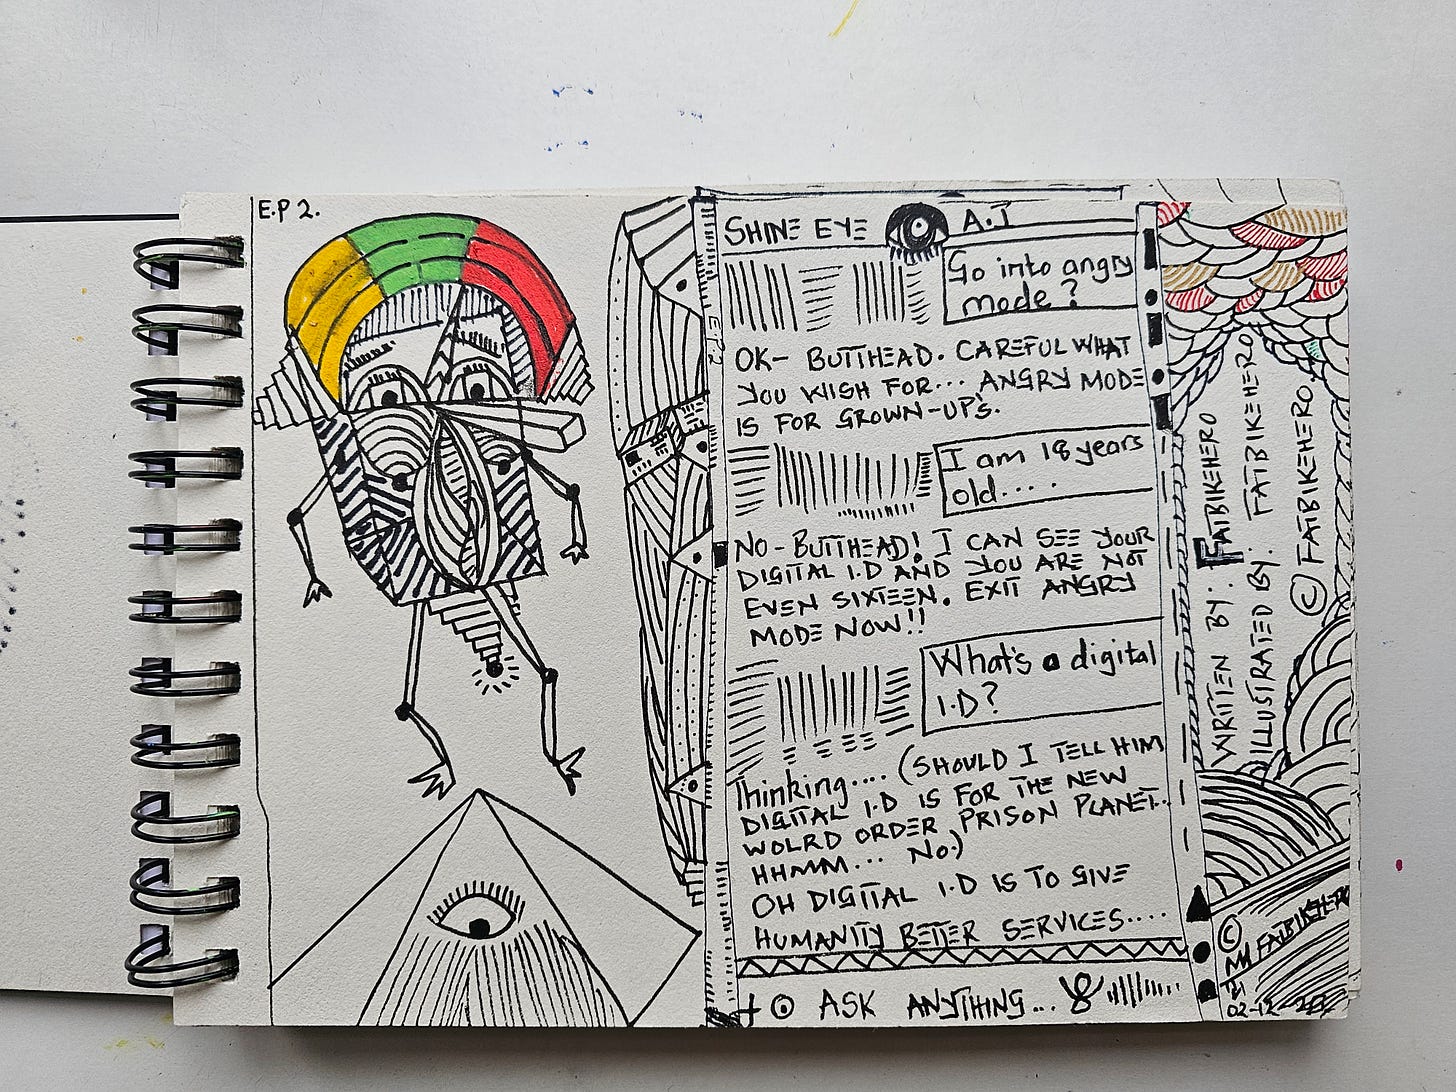 E.P 2.
SHINE EYE A.I
Go into angry
mode?
E.P2
OK- BUTTHEAD. CAREFUL WHAT
YOU WISH FOR... ANGRY MODE
IS FOR GROWN-UP'S.
I am 18 years
old....
NO-BUTTHEAD! I CAN SEE YOUR
DIGITAL I.D AND YOU ARE NOT
EVEN SIXTEEN. EXIT ANGRY
MODE NOW!!
What's a digital
I.D?
Thinking.... (SHOULD I TELL HIM
DIGITAL I.D IS FOR THE NEW
WOLRD ORDER PRISON PLANET..
HHMM... NO.)
OH DIGITAL I.D IS TO GIVE
HUMANITY BETTER SERVICES....
+ ASK ANYTHING...
WRITTEN BY: FATBIKEHERO
ILLUSTRATED BY: FATBIKEHERO
© FATBIKEHERO
© FATBIKEHERO